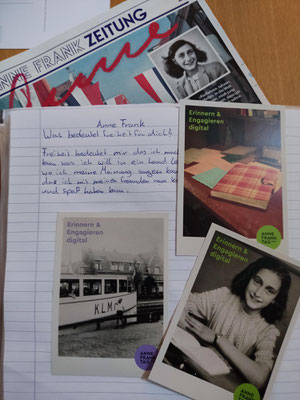 NNE FRANK ZEITUNG
Anne
Anne Frank
Was bedeutet Freiheit für dich?
Freiheit bedeutet mir das ich
kan was ich will in ein Land
wo ich meine Meinung sagen kann
das ich mit meinen freunden raus
und spaß haben kan.
Erinnern &
Engagieren
digital
ANNE
FRANK
TAG
Erinnern &
Engagieren
digital
KLM
ANNE
FRANK
TAG
Erinnern &
Engagieren
digital
ANNE
FRANK
TAG